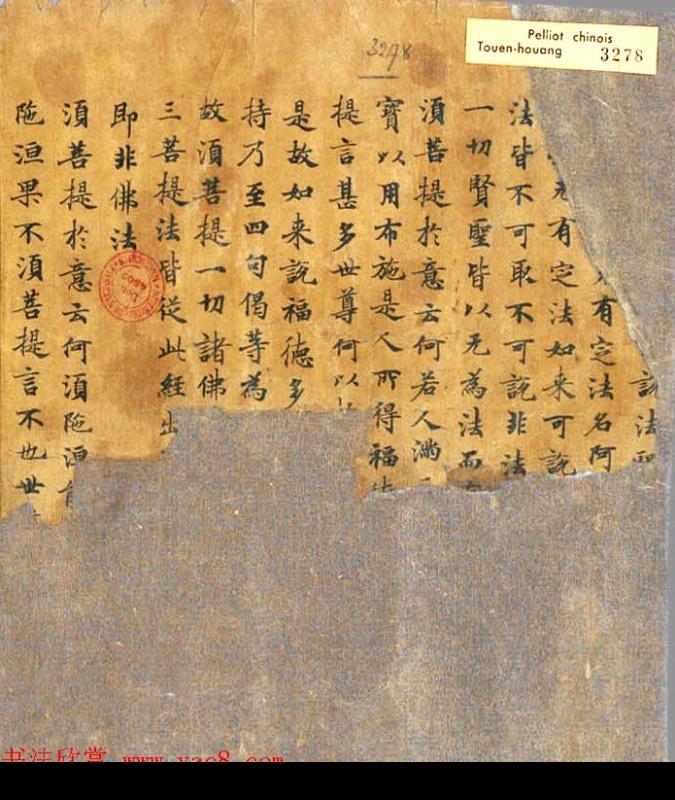 Pelliot chinois
Touen-houang 3278
3278
説法
有定法名阿
有定法如来可說
法皆不可取不可說非法
一切賢聖皆以无為法而
湏菩提於意云何若人滿
寶以用布施是人所得福
提言甚多世尊何以
是故如来說福德多
持乃至四句偈等為
故湏菩提一切諸佛
三菩提法皆従此經出
即非佛法
湏菩提於意云何湏陁洹
陁洹果不湏菩提言不也世
书法欣赏 www.yac8.com